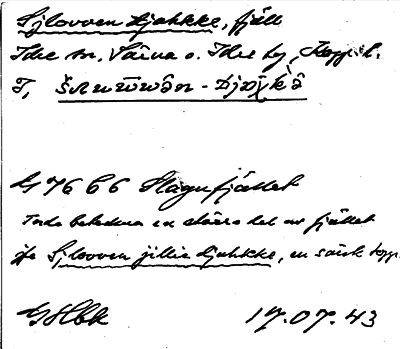 Sjlovven djahkke, fjäll
Idre sn, Särna o. Idre tg, Kopp. l.
T,
G 7666 Hågnfjället
Torde beteckna en större del av fjället
jfr Sjlovven jillie djahkke, en särsk topp.
GHbk 17.07.43